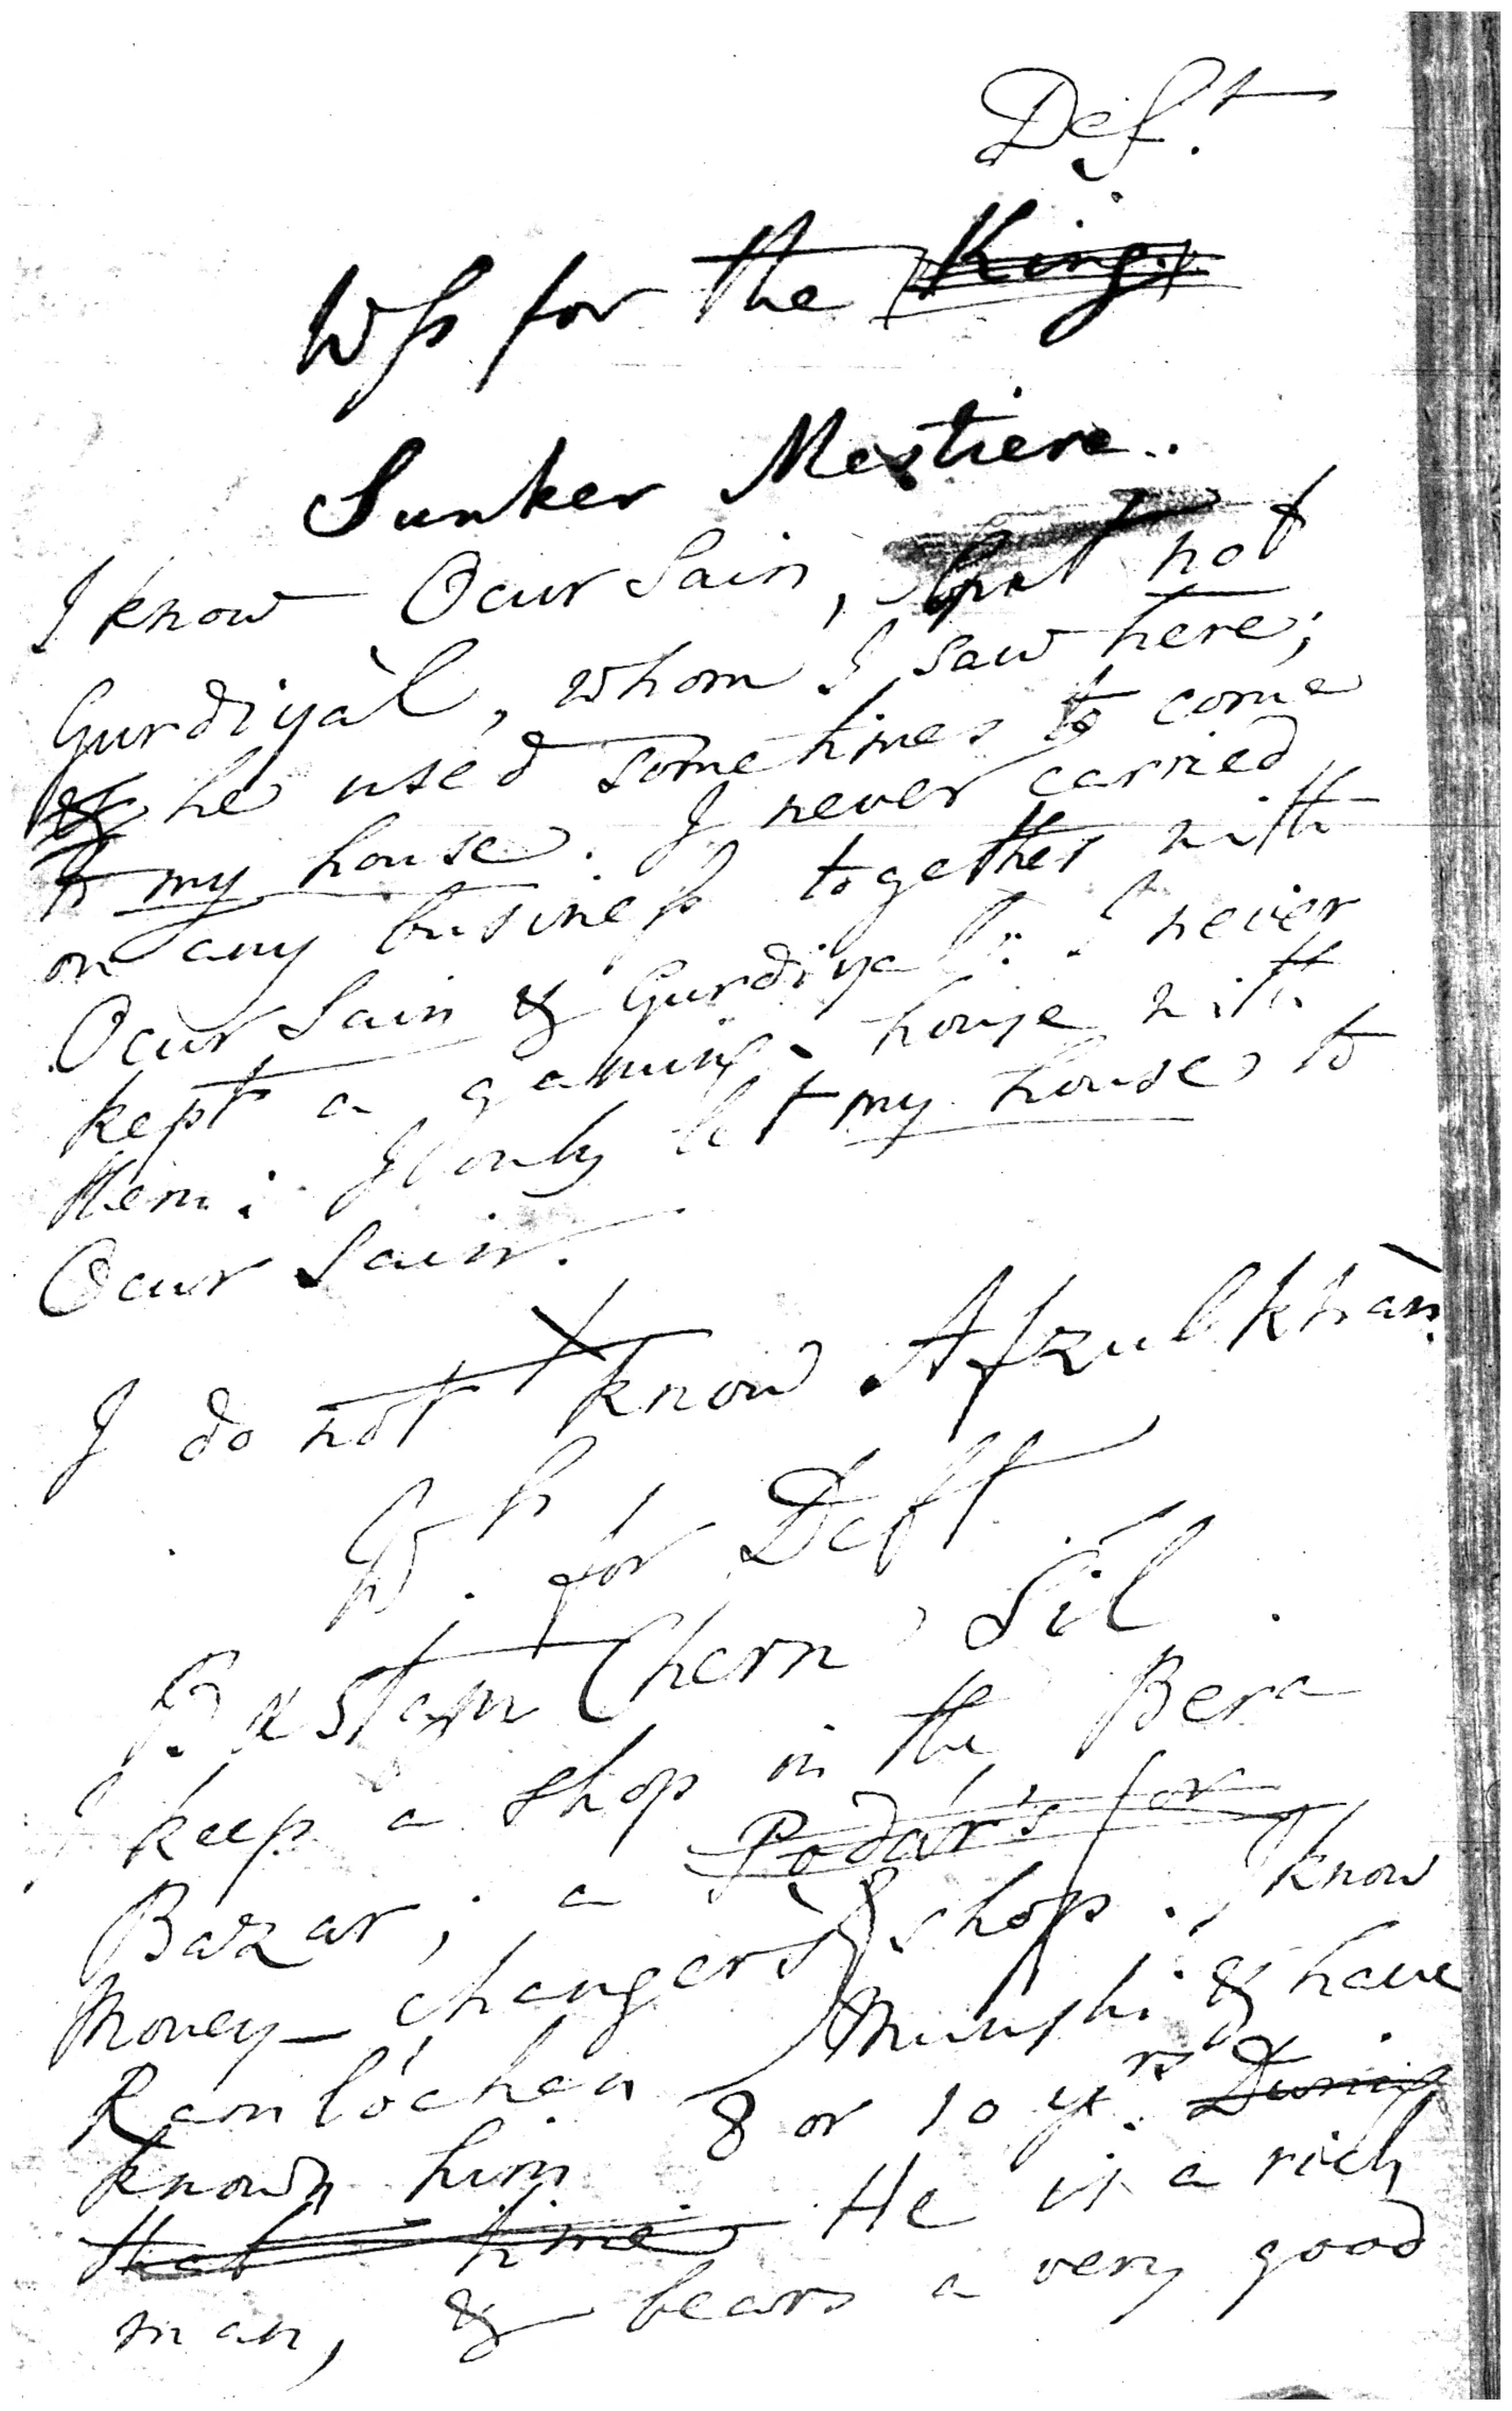 Deft.
Wss for the King
Sunker Mestiere.
I know Ocur Sain, but not
Gurdiyàl, whom I saw here;
& he used sometimes to come
to my house. I never carried
on any business together with
Ocur Sain & Gurdiyal. I never
kept a gaming-house with
them: I only let my house to
Ocur Sain.
I do not know Afzulkhàn.
for Deft
Chern Sil
I keep a shop in the Bera
Bazar; a Podar's for
Money-changer's shop. I know
Ramlóchen Munshi & have
known him 8 or 10 yrs. During
that time He is a rich
man, & bears a very good